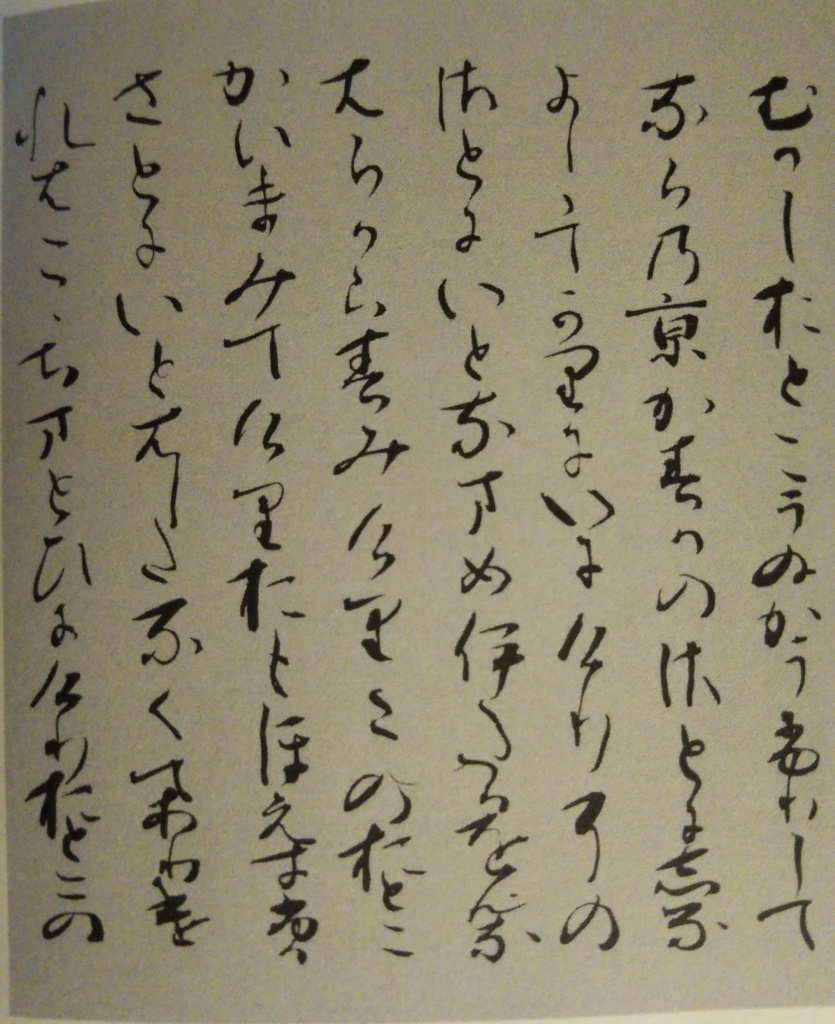 むかしおとこうゐかうふりして
なら乃京かすかのさとにしる
よしゝてかりにいにけりその
さとにいとなまめいたるをんな
はらからすみけりこのおとこ
かいまみてけりおもほえすふる
さとにいとはしたなくてありけ
れはこゝちまとひにけりおとこの